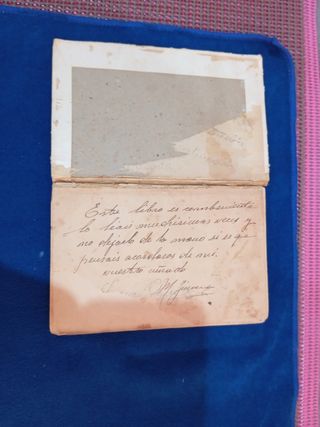 Este libro es combeniente
lo leais muchisimas veces y
no dejarlo de la mano si es que
pensais acordaros de mi.
vuestro cuñado